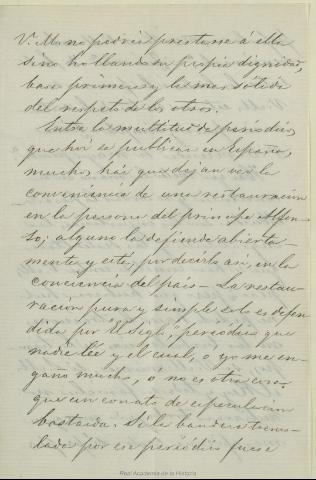 V. M. no podría prestarse á ella
sino hollando su propia dignidad,
base primera y la mas sólida
del respeto de los otros.
Entre la multitud de periodicos
que hoi se publican en España,
muchos hai que dejan ver la
conveniencia de una restauracion
en la persona del principe Alfon-
so; alguno la defiende abierta-
mente y esta, por decirlo asi, en la
conciencia del pais - La restau-
racion pura y simple solo es defen-
dida por "El Siglo", periodico que
nadie lée y el cual, o yo me en-
gaño mucho, ó no es otra cosa
que un conato de especulacion
bastarda. Si la bandera tremo-
lada por ese periodico fuese
Real Academia de la Historia